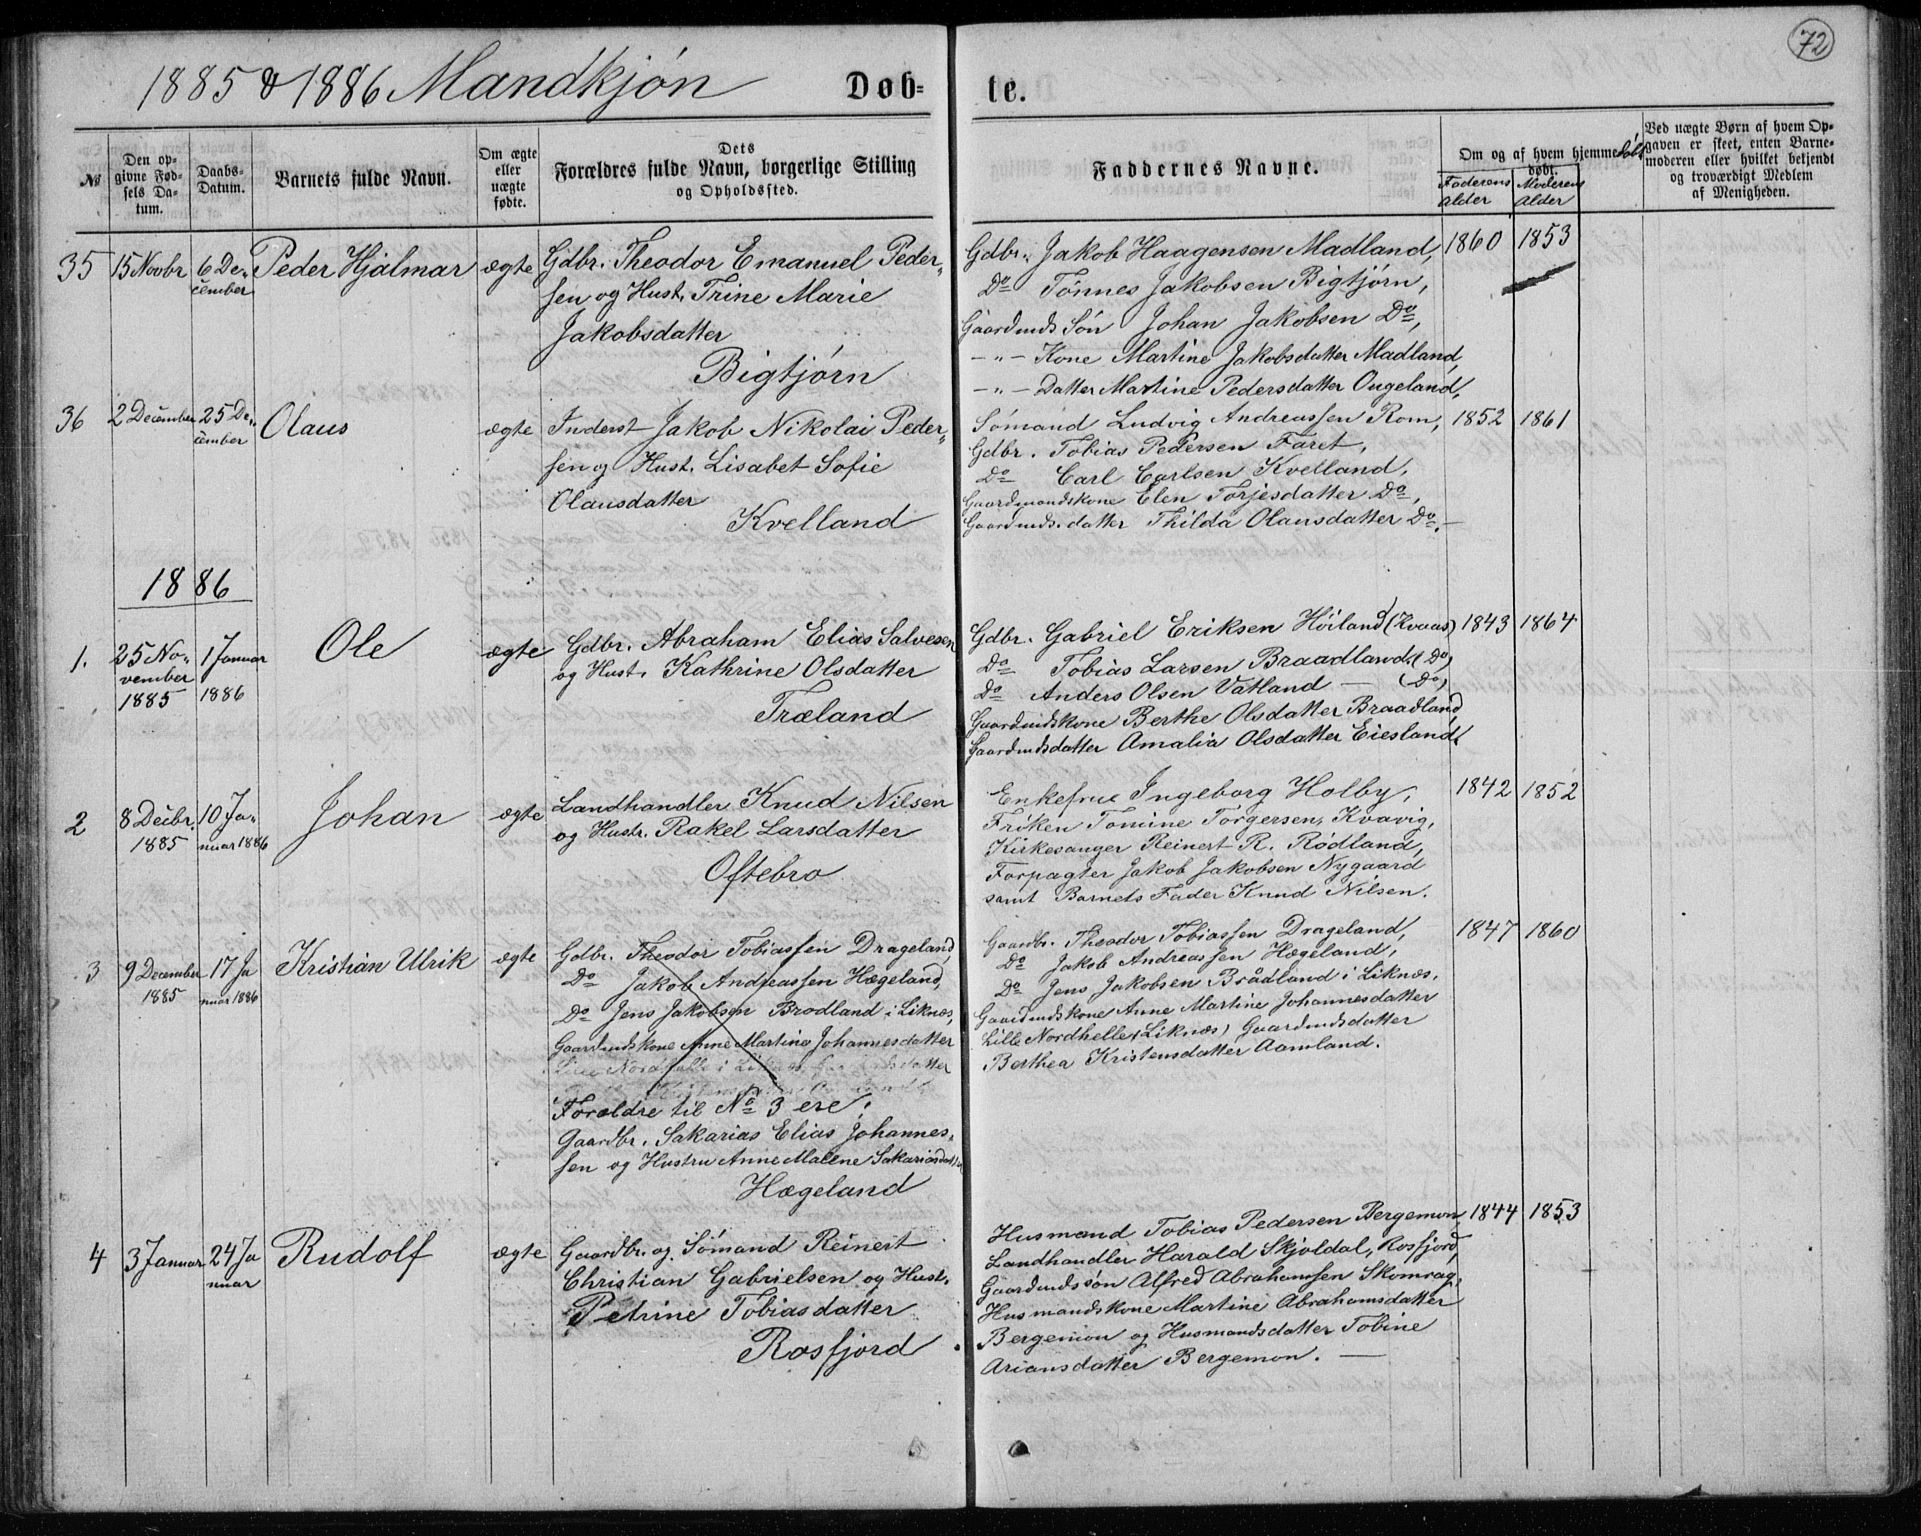 72
1885 & 1886 Mandkjøn Døb- te.
№
Den op-
givne Fød-
sels Da-
tum.
Daabs-
Datum.
Barnets fulde Navn.
Om ægte
eller
uægte
fødte.
Dets
Forældres fulde Navn, borgerlige Stilling
og Opholdssted.
Faddernes Navne.
Om og af hvem hjemme
døbt.
Faderens
Alder
Moderens
Alder
Ved uægte Børn af hvem Op-
gaven er skeet, enten Barne-
moderen eller hvilket bekjendt
og troværdigt Medlem
af Menigheden.
35
15 Novbr
6 De-
cember
Peder Hjalmar
ægte
Gdbr. Theodor Emanuel Peder-
sen og Hust. Trine Marie
Jakobsdatter
Bigtjørn
Gdbr. Jakob Haagensen Madland,
Do Tønnes Jakobsen Bigtjørn,
Gaardmds Søn Johan Jakobsen Do,
-"- Kone Martine Jakobsdatter Madland,
-"- Datter Martine Pedersdatter Ougeland,
1860
1853
36
2 December
25 De-
cember
Olaus
ægte
Inderst Jakob Nikolai Peder-
sen og Hust. Lisabet Sofie
Olausdatter
Kvelland
Sømand Ludvig Andreassen Rom,
Gdbr. Tobias Pedersen Faret,
Do Carl Carlsen Kvelland,
Gaardmandskone Elen Torjesdatter Do,
Gaardmds.datter Thilda Olausdatter Do. –
1852
1861
1886
1.
25 No-
vember
1885
1 Januar
1886
Ole
ægte
Gdbr. Abraham Elias Salvesen
og Hust. Kathrine Olsdatter
Træland
Gdbr. Gabriel Eriksen Høiland (Kvaas)
Do Tobias Larsen Braadland (Do)
Do Anders Olsen Vatland – (Do)
Gaardmdskone Berthe Olsdatter Braadland
Gaardmdsdatter Amalia Olsdatter Eiesland.
1843
1864
2
8 Decbr.
1885
10 Ja-
nuar 1886
Johan
ægte
Landhandler Knud Nilsen
og Hustr. Rakel Larsdatter
Oftebro
Enkefrue Ingeborg Holby,
Frøken Tomine Torgersen, Kvavig,
Kirkesanger Reinert R. Rødland,
Forpagter Jakob Jakobsen Nygaard
samt Barnets Fader Knud Nilsen.
1842
1852
3
9 December
1885
17 Ja
nuar 1886
Kristian Ulrik
ægte
Gdbr. Theodor Tobiassen Drageland,
Do Jakob Andreassen Hægeland,
Do Jens Jakobsen Brodland i Liknæs,
Gaardmdskone Anne Martine Johannesdatter
Forældre til No 3 ere:
Gaardbr. Sakarias Elias Johannes-
sen og Hustru Anne Malene Sakariasdatter
Hægeland
Gaardbr. Theodor Tobiassen Drageland,
Do Jakob Andreassen Hægeland,
Do Jens Jakobsen Brådland i Liknæs,
Gaardmdskone Anne Martine Johannesdatter
Lille Nordhelle (Liknæs) Gaardmdsdatter
Berthea Kristensdatter Aamland.
1847
1860
4
3 Januar
24 Ja
nuar
Rudolf
ægte
Gaardbr. og Sømand Reinert
Christian Gabrielsen og Hust.
Petrine Tobiasdatter
Rosfjord
Husmand Tobias Pedersen Bergemon,
Landhandler Harald Skjoldal, Rosfjord,
Gaardmdssøn Alfred Abrahamsen Skomrag,
Husmandskone Martine Abrahamsdatter
Bergemon og Husmandsdatter Tobine
Ariansdatter Bergemon. –
1844
1853